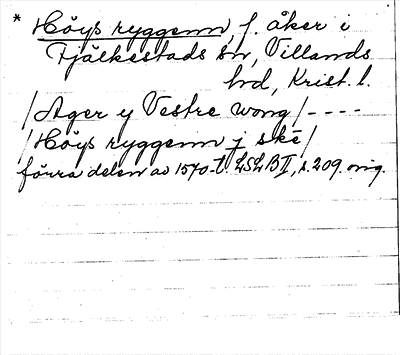 * Höys ryggenn, f. åker i
Fjälkestads sn, Villands
hd, Krist. l.
/Ager y Vestre wong/----
/Höys ryggenn j skê/
förra delen av 1570-t. LSLB II, s. 209. orig.